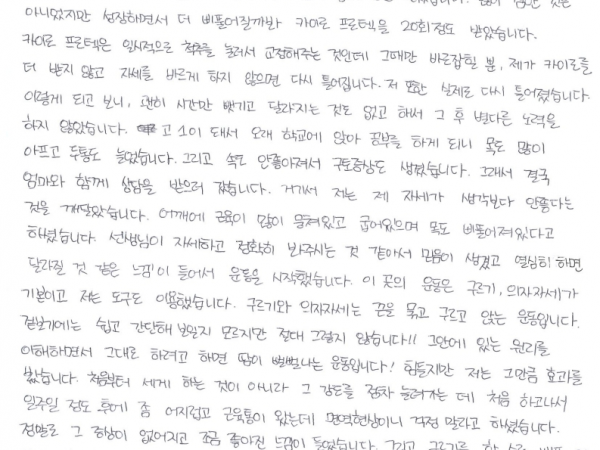 아니었지만 성장하면서 더 삐뚤어질까봐 카이로 프로텍을 20회정도 받았습니다.
카이로 프로텍은 일시적으로 척추를 눌러서 교정해주는 것인데 그때만 바로잡힐 뿐, 제가 카이로를
더 받지 않고 자세를 바르게 하지 않으면 다시 틀어집니다. 저 또한 실제로 다시 틀어졌습니다.
이렇게 되고 보니, 괜히 시간만 뺏기고 달라지는 것도 없고 해서 그 후 별다른 노력을
하지 않았습니다. 고1이 돼서 오래 학교에 앉아 공부를 하게 되니 목도 많이
아프고 두통도 늘었습니다. 그리고 속도 안좋아져서 구토증상도 생겼습니다. 그래서 결국
엄마와 함께 상담을 받으러 갔습니다. 거기서 저는 제 자세가 생각보다 안좋다는
것을 깨달았습니다. 어깨에 근육이 많이 뭉쳐있고 굽어있으며 목도 삐뚤어져있다고
하셨습니다. 선생님이 자세하고 정확히 봐주시는 것 같아서 믿음이 생겼고 열심히 하면
달라질 것 같은 느낌이 들어서 운동을 시작했습니다. 이 곳의 운동은 구르기, 의자자세가
기본이고 저는 도구도 이용했습니다. 구르기와 의자자세는 끈을 묶고 구르고 앉는 운동입니다.
겉보기에는 쉽고 간단해 보일지 모르지만 절대 그렇지 않습니다!! 그안에 있는 원리를
이해하면서 그대로 하려고 하면 땀이 뻘뻘나는 운동입니다! 힘들지만 저는 그만큼 효과를
봤습니다. 처음부터 세게 하는 것이 아니라 그 강도를 점차 늘려가는 데 처음 하고나서
일주일 정도 후에 좀 어지럽고 근육통이 왔는데 명역현상이니 걱정 말라고 하셨습니다.
정말로 그 증상이 없어지고 조금 좋아진 느낌이 들었습니다. 그리고 구르기를